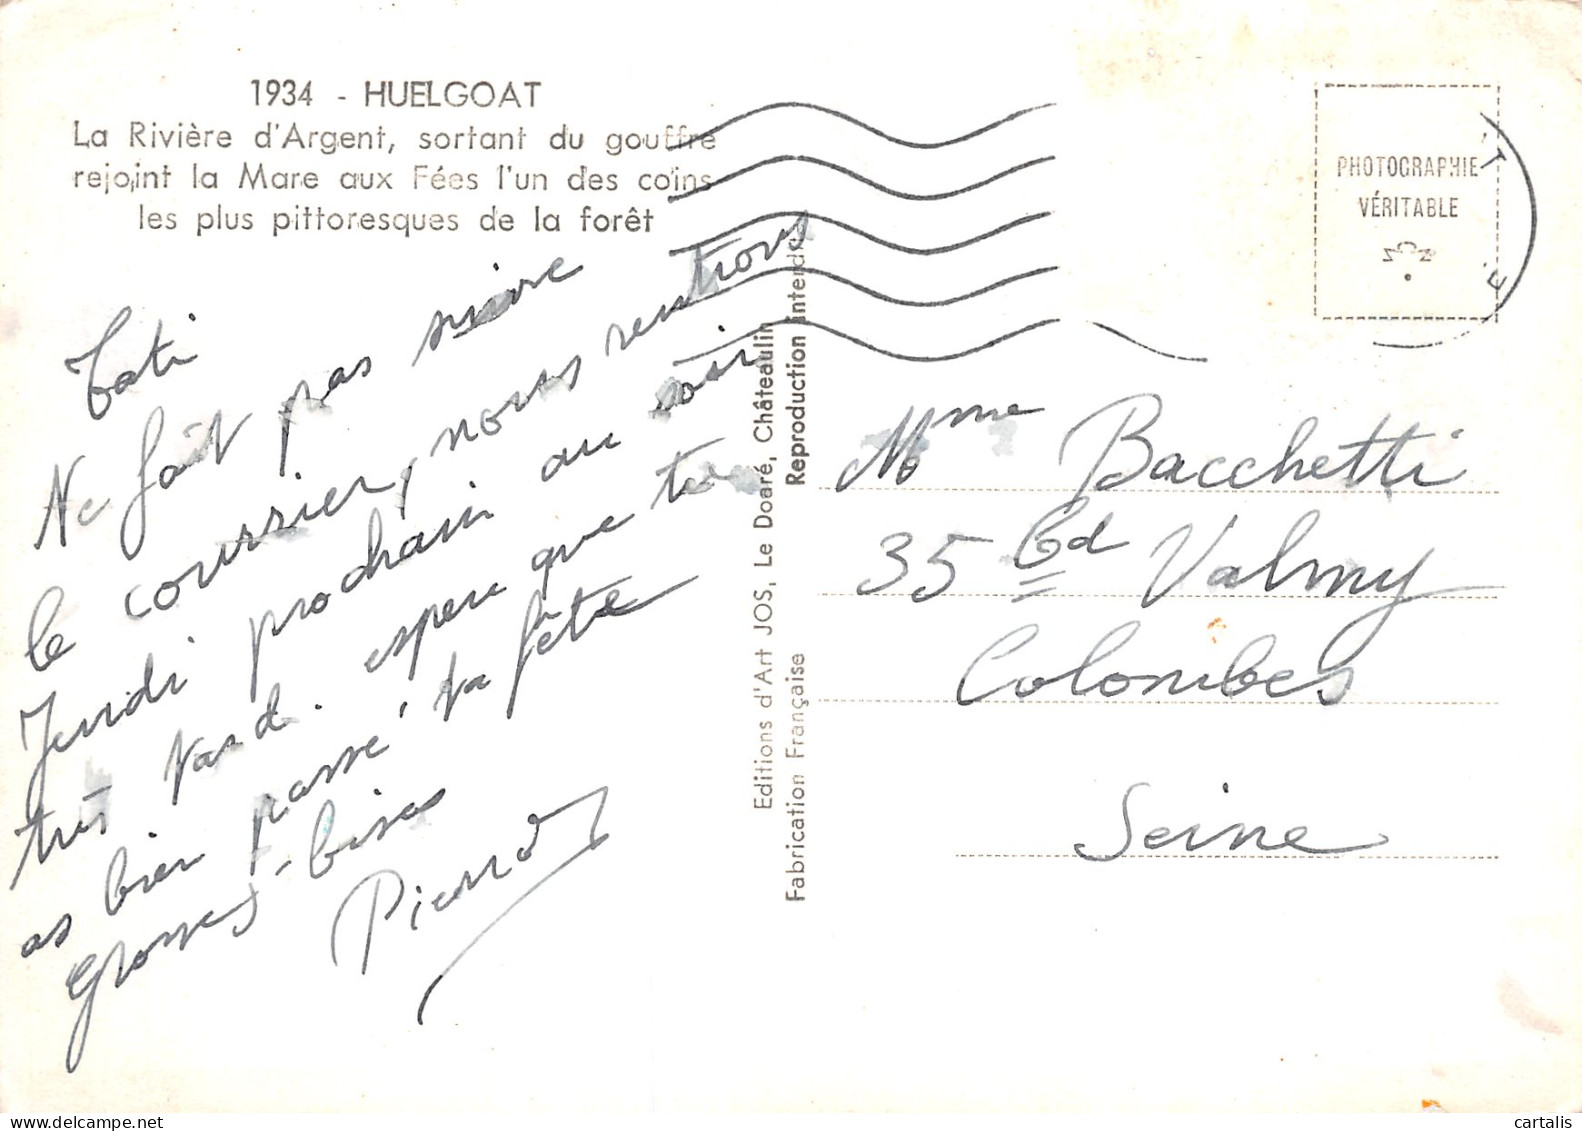 1934 - HUELGOAT
La Rivière d'Argent, sortant du gouffre
rejoint la Mare aux Fées l'un des coins
les plus pittoresques de la forêt
PHOTOGRAPHIE
VÉRITABLE
Tati
Ne fait pas suivre
le courrier, nous rentrons
Jeudi prochain au soir
très tard. espere que tu
as bien passé ta fête
Grosses bises
Pierrot
Editions d'Art JOS, Le Doaré, Châteaulin
Fabrication Française Reproduction interdite
Mme Bacchetti
35 Bd Valmy
Colombes
Seine
cartalis